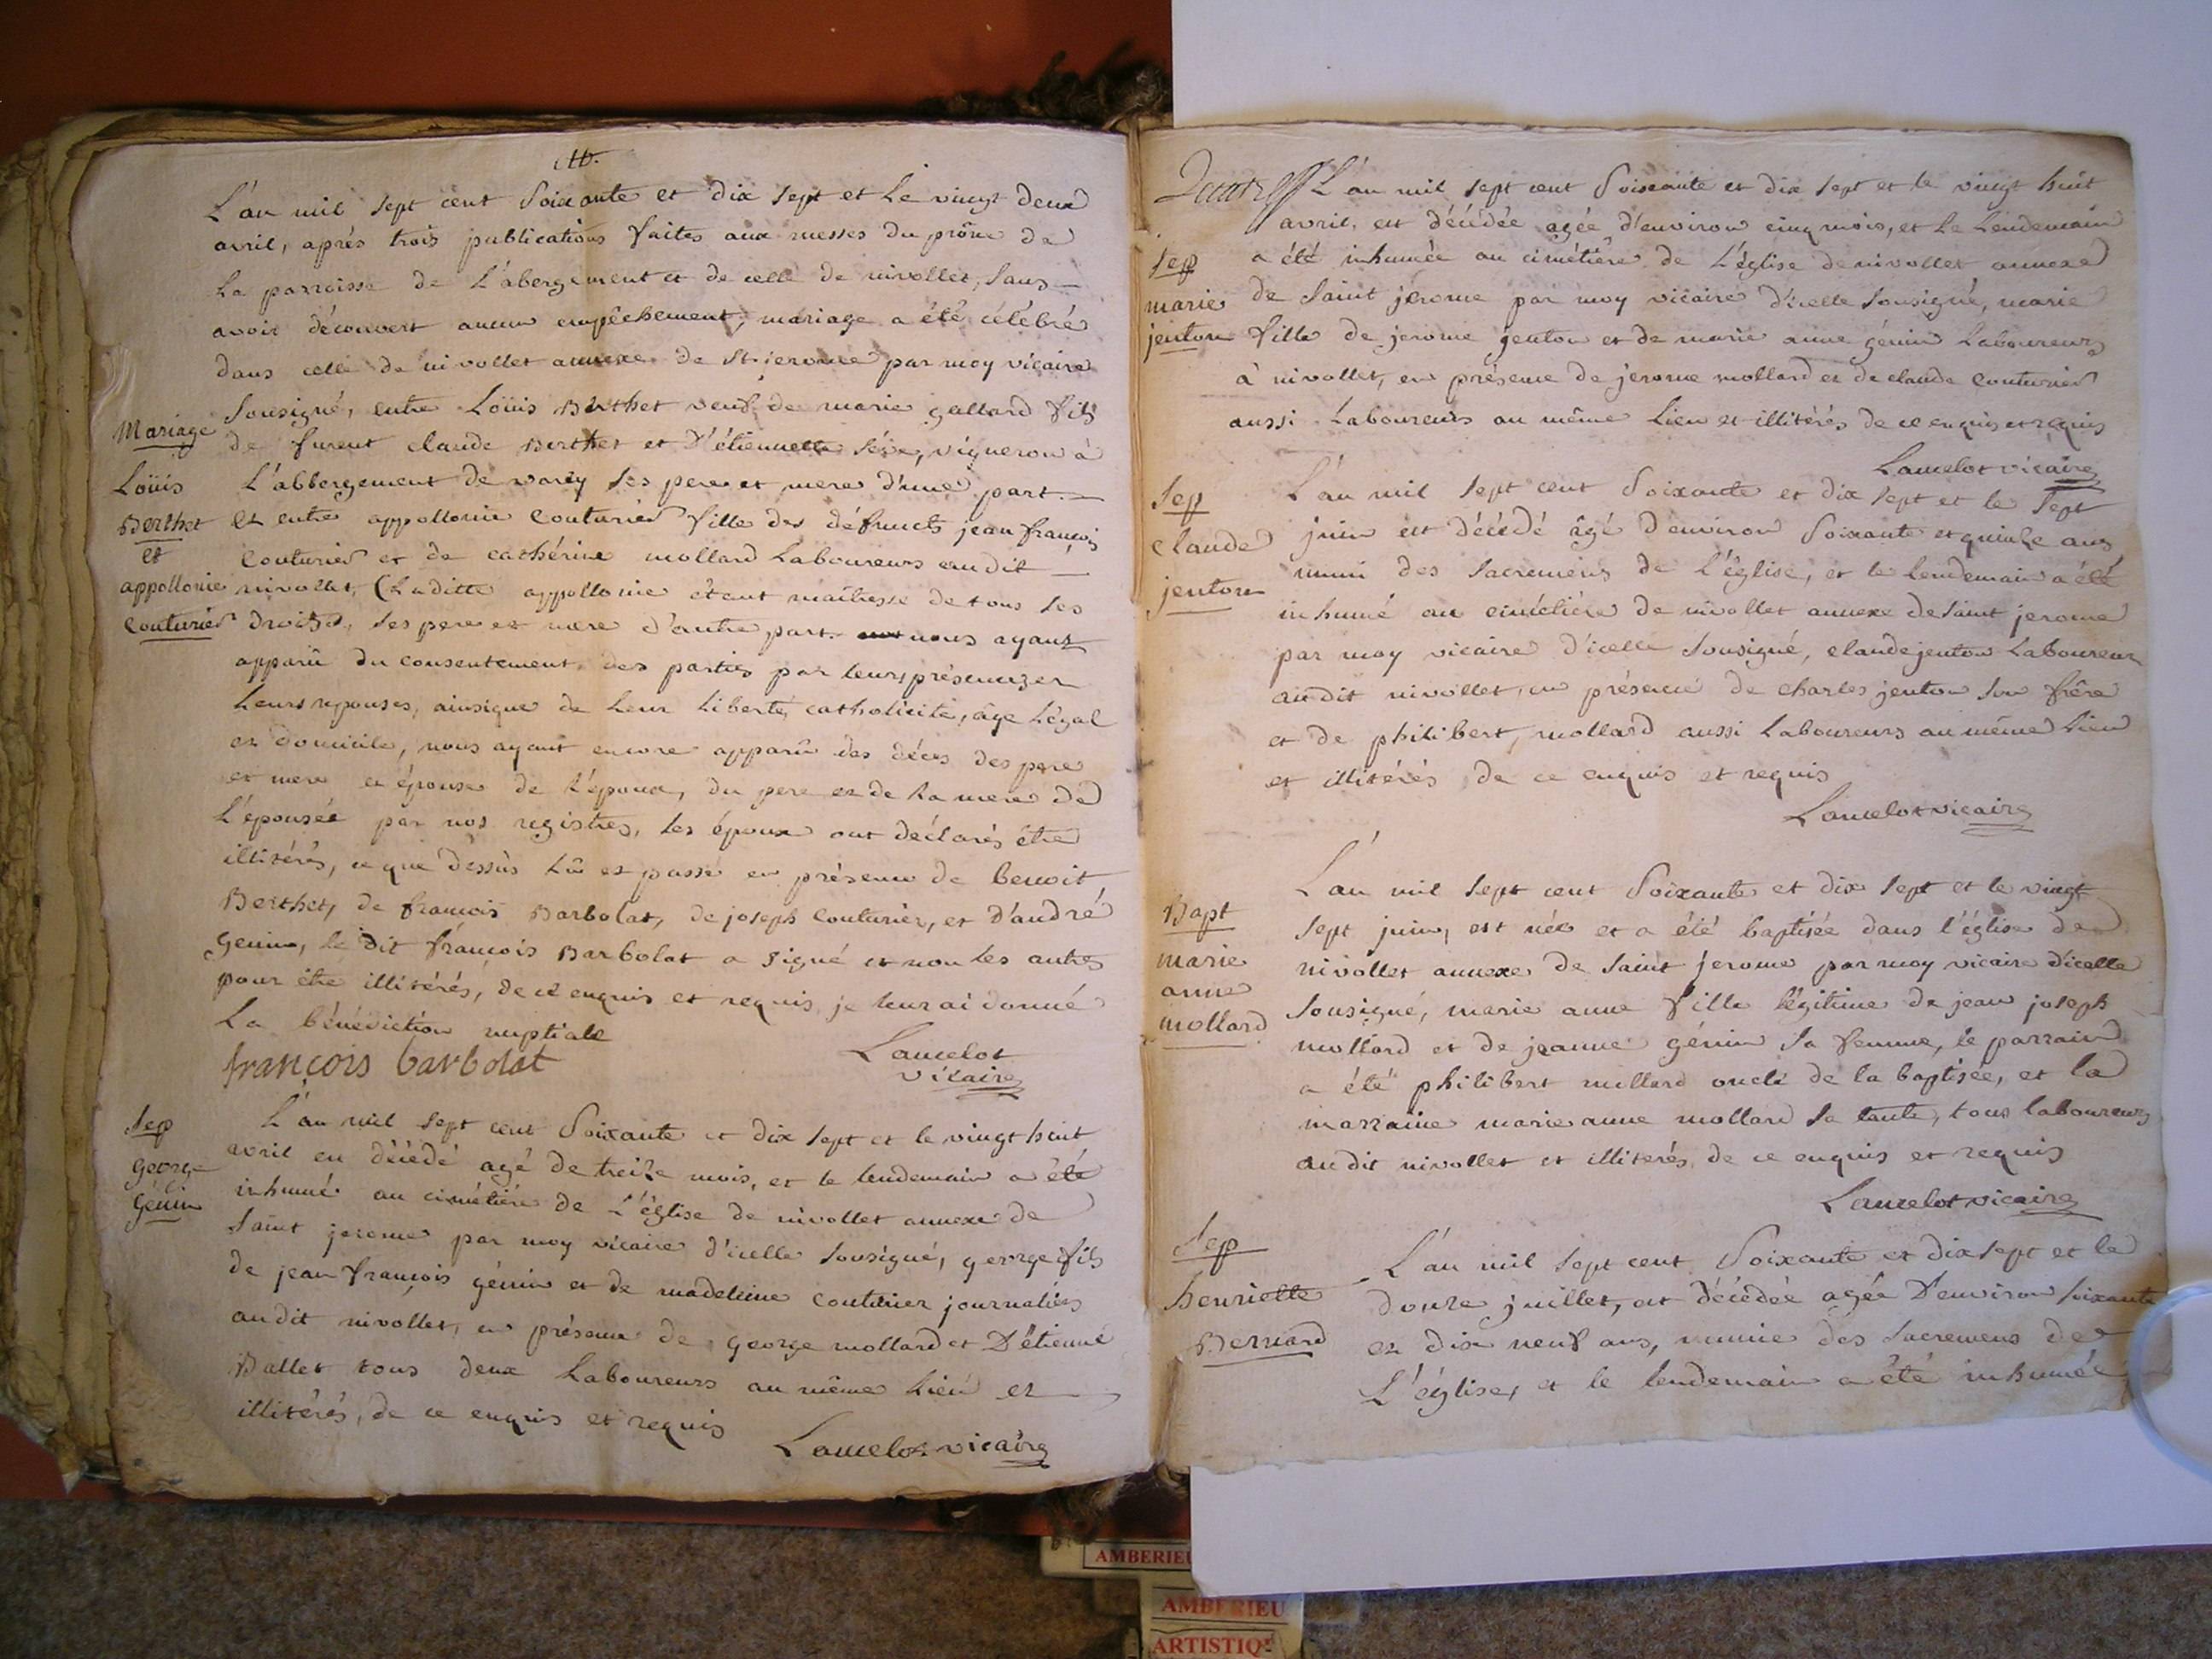 L'an mil sept cent Soixante et dix sept et le vingt deux
avril, aprés trois publications faites aux messes du prône de
la parroisse de L'abergement et de celle de nivollet, sans
avoir découvert aucun empêchement, mariage a été célébré
dans celle de nivollet annexe de St. jerome par moy vicaire
Mariage
Soussigné, entre Loüis Berthet veuf de marie gallard fils
de furent claude Berthet et D'étiennette, vigneron à
Loüis
L'abbergement de varey ses pere et mere d'une part
Berthet
et
Et entre appollonie Couturier fille des défuncts jean françois
Couturier et de cathérine mollard Laboureurs audit
appollonie
nivollet, (Laditte appollonie étant maîtresse de tous ses
Couturier
droits, ses pere et mere d'autre part. nous ayant
apparû du consentement des parties par leurs présences et
Leurs réponses, ainsique de leur liberté, catholicité, âge légal
et domicile, nous ayant encore apparû des décès des pere
et mere et épouse de l'époux, du pere et de la mere de
L'épousée par nos registres, les époux ont déclarés être
illitérés, ce que dessùs lû et passé en présence de benoit
Berthet, de françois Barbolat, de joseph Couturier, et D'andré
genin, le dit françois Barbolat a signé et non les autres
pour être illitérés, de ce enquis et requis, je leur ai donné
La bénédiction nuptiale
françois barbolat
Lancelot
vicaire
Sep
george
génin
L'an mil sept cent Soixante et dix sept et le vingt huit
avril est décédé agé de treize mois, et le lendemain a été
inhumé au cimétiére de L'église de nivollet annexe de
Saint jerome par moy vicaire d'icelle Sousigné, george fils
de jean françois génin et de madeleine couturier journaliers
audit nivollet, en présence de george mollard et D'étienne
Ballet tous deux Laboureurs au même lieu et
illitérés, de ce enquis et requis
Lancelot vicaire
L'an mil sept cent Soixante et dix sept et le vingt huit
avril, est décédée agée d'environ cinq mois, et le lendemain
Sep
marie
jenton
a été inhumée au cimétiére de L'église de nivollet annexe
de Saint jerome par moy vicaire d'icelle Sousigné, marie
fille de jerome jenton et de marie anne génin Laboureurs
à nivollet, en présence de jerome mollard et de claude Couturier
aussi Laboureurs au même Lieu et illitérés de ce enquis et requis
Lancelot vicaire
Sep
claude
jenton
L'an mil sept cent Soixante et dix sept et le sept
juin est décédé âgé d'environ Soixante et quinze ans
muni des Sacremens de L'église, et le lendemain a été
inhumé au cimétiére de nivollet annexe de Saint jerome
par moy vicaire d'icelle Sousigné, claude jenton Laboureur
audit nivollet, en présence de charles jenton son frêre
et de philibert, mollard aussi Laboureurs au même lieu
et illitérés de ce enquis et requis
Lancelot vicaire
Bapt
marie
anne
mollard
L'an mil sept cent Soixante et dix sept et le vingt
sept juin, est née et a été baptisée dans l'église de
nivollet annexe de Saint jerome par moy vicaire d'icelle
Sousigné, marie anne fille légitime de jean joseph
mollard et de jeanne génin sa femme, le parrain
a été philibert mollard oncle de la baptisée, et la
marraine marie anne mollard sa tante, tous laboureurs
audit nivollet et illiterés de ce enquis et requis
Lancelot vicaire
Sep
henriette
Bernard
L'an mil sept cent Soixante et dix sept et le
douze juillet, est décédée agée D'environ soixante
et dix neuf ans, munie des Sacremens de
L'église, et le lendemain a été inhumée
AMBERIEU
AMBERIEU
ARTISTIQUE